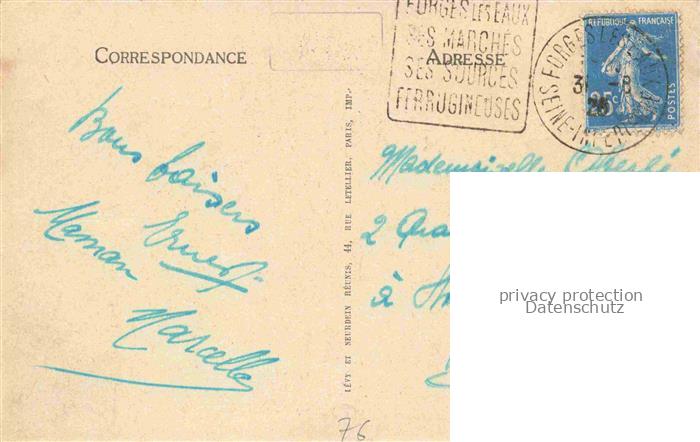 CORRESPONDANCE
ADRESSE
FORGES LES EAUX
SES MARCHÉS
SES SOURCES
FERRUGINEUSES
FORGES LES
31 -8
25
SEINE-INFERIEURE
REPUBLIQUE FRANÇAISE
25c
POSTES
Bons baisers
Ernest
Maman
Marcelle
LÉVY ET NEURDEIN RÉUNIS, 44, RUE LETELLIER, PARIS, IMP.
Mademoiselle
2
à
privacy protection
Datenschutz
76